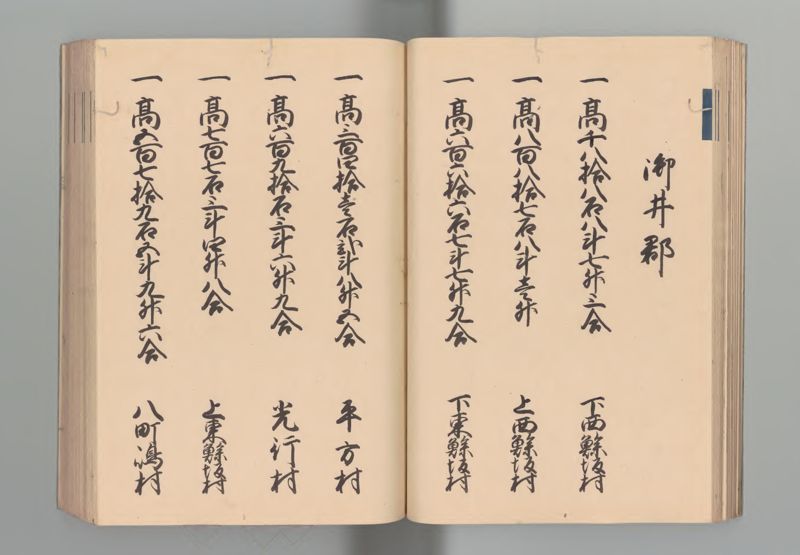 御井郡
一 高千八拾八石八斗七升三合 下西鯵坂村
一 高八百八拾七石八斗壱升 上西鯵坂村
一 高六百六拾六石七斗七升九合 下東鯵坂村
一 高三百四拾壱石弐斗八升五合 平方村
一 高六百九拾石三斗六升九合 光行村
一 高七百七石三斗四升八合 上東鯵坂村
一 高五百七拾九石五斗九升六合 八町嶋村